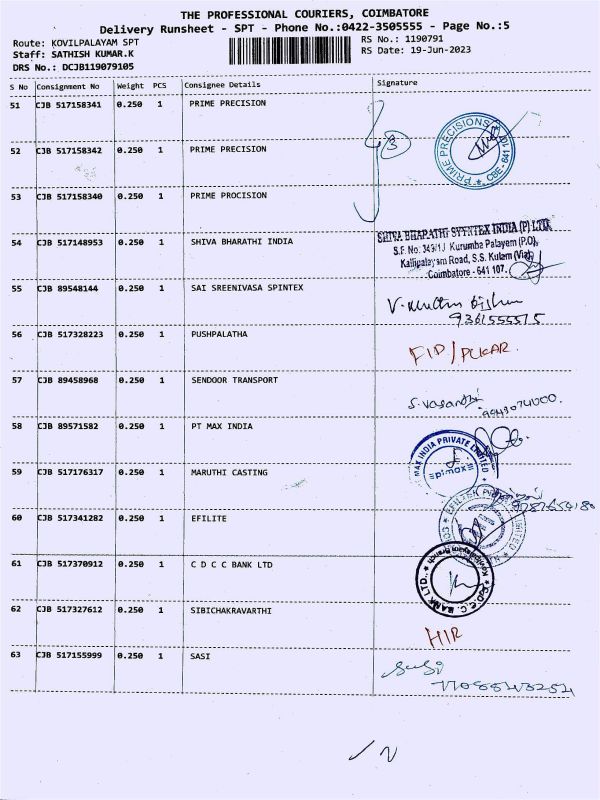 THE PROFESSIONAL COURIERS, COIMBATORE
Delivery Runsheet - SPT - Phone No.:0422-3505555 - Page No.:5
Route: KOVILPALAYAM SPT
RS No.: 1190791
Staff: SATHISH KUMAR.K
RS Date: 19-Jun-2023
DRS No.: DCJB119079105
S No Consignment No Weight PCS Consignee Details Signature
51 CJB 517158341 0.250 1 PRIME PRECISION
3
PRIME PRECISIONS * CBE - 641 107
52 CJB 517158342 0.250 1 PRIME PRECISION
53 CJB 517158340 0.250 1 PRIME PROCISION
54 CJB 517148953 0.250 1 SHIVA BHARATHI INDIA
SHIVA BHARATHI SYNTEX INDIA (P) LTD
S.F. No: 349/1J Kurumba Palayem (P.O),
Kallipalayam Road, S.S. Kulam (Via),
Coimbatore - 641 107.
55 CJB 89548144 0.250 1 SAI SREENIVASA SPINTEX
9361555575
56 CJB 517328223 0.250 1 PUSHPALATHA
57 CJB 89458968 0.250 1 SENDOOR TRANSPORT
S. Vasanthi
58 CJB 89571582 0.250 1 PT MAX INDIA
MAX INDIA PRIVATE LIMITED
pimax
59 CJB 517176317 0.250 1 MARUTHI CASTING
60 CJB 517341282 0.250 1 EFILITE
61 CJB 517370912 0.250 1 C D C C BANK LTD
C.D.C.C. BANK LTD., * Kovilpalayam Branch *
62 CJB 517327612 0.250 1 SIBICHAKRAVARTHI
63 CJB 517155999 0.250 1 SASI